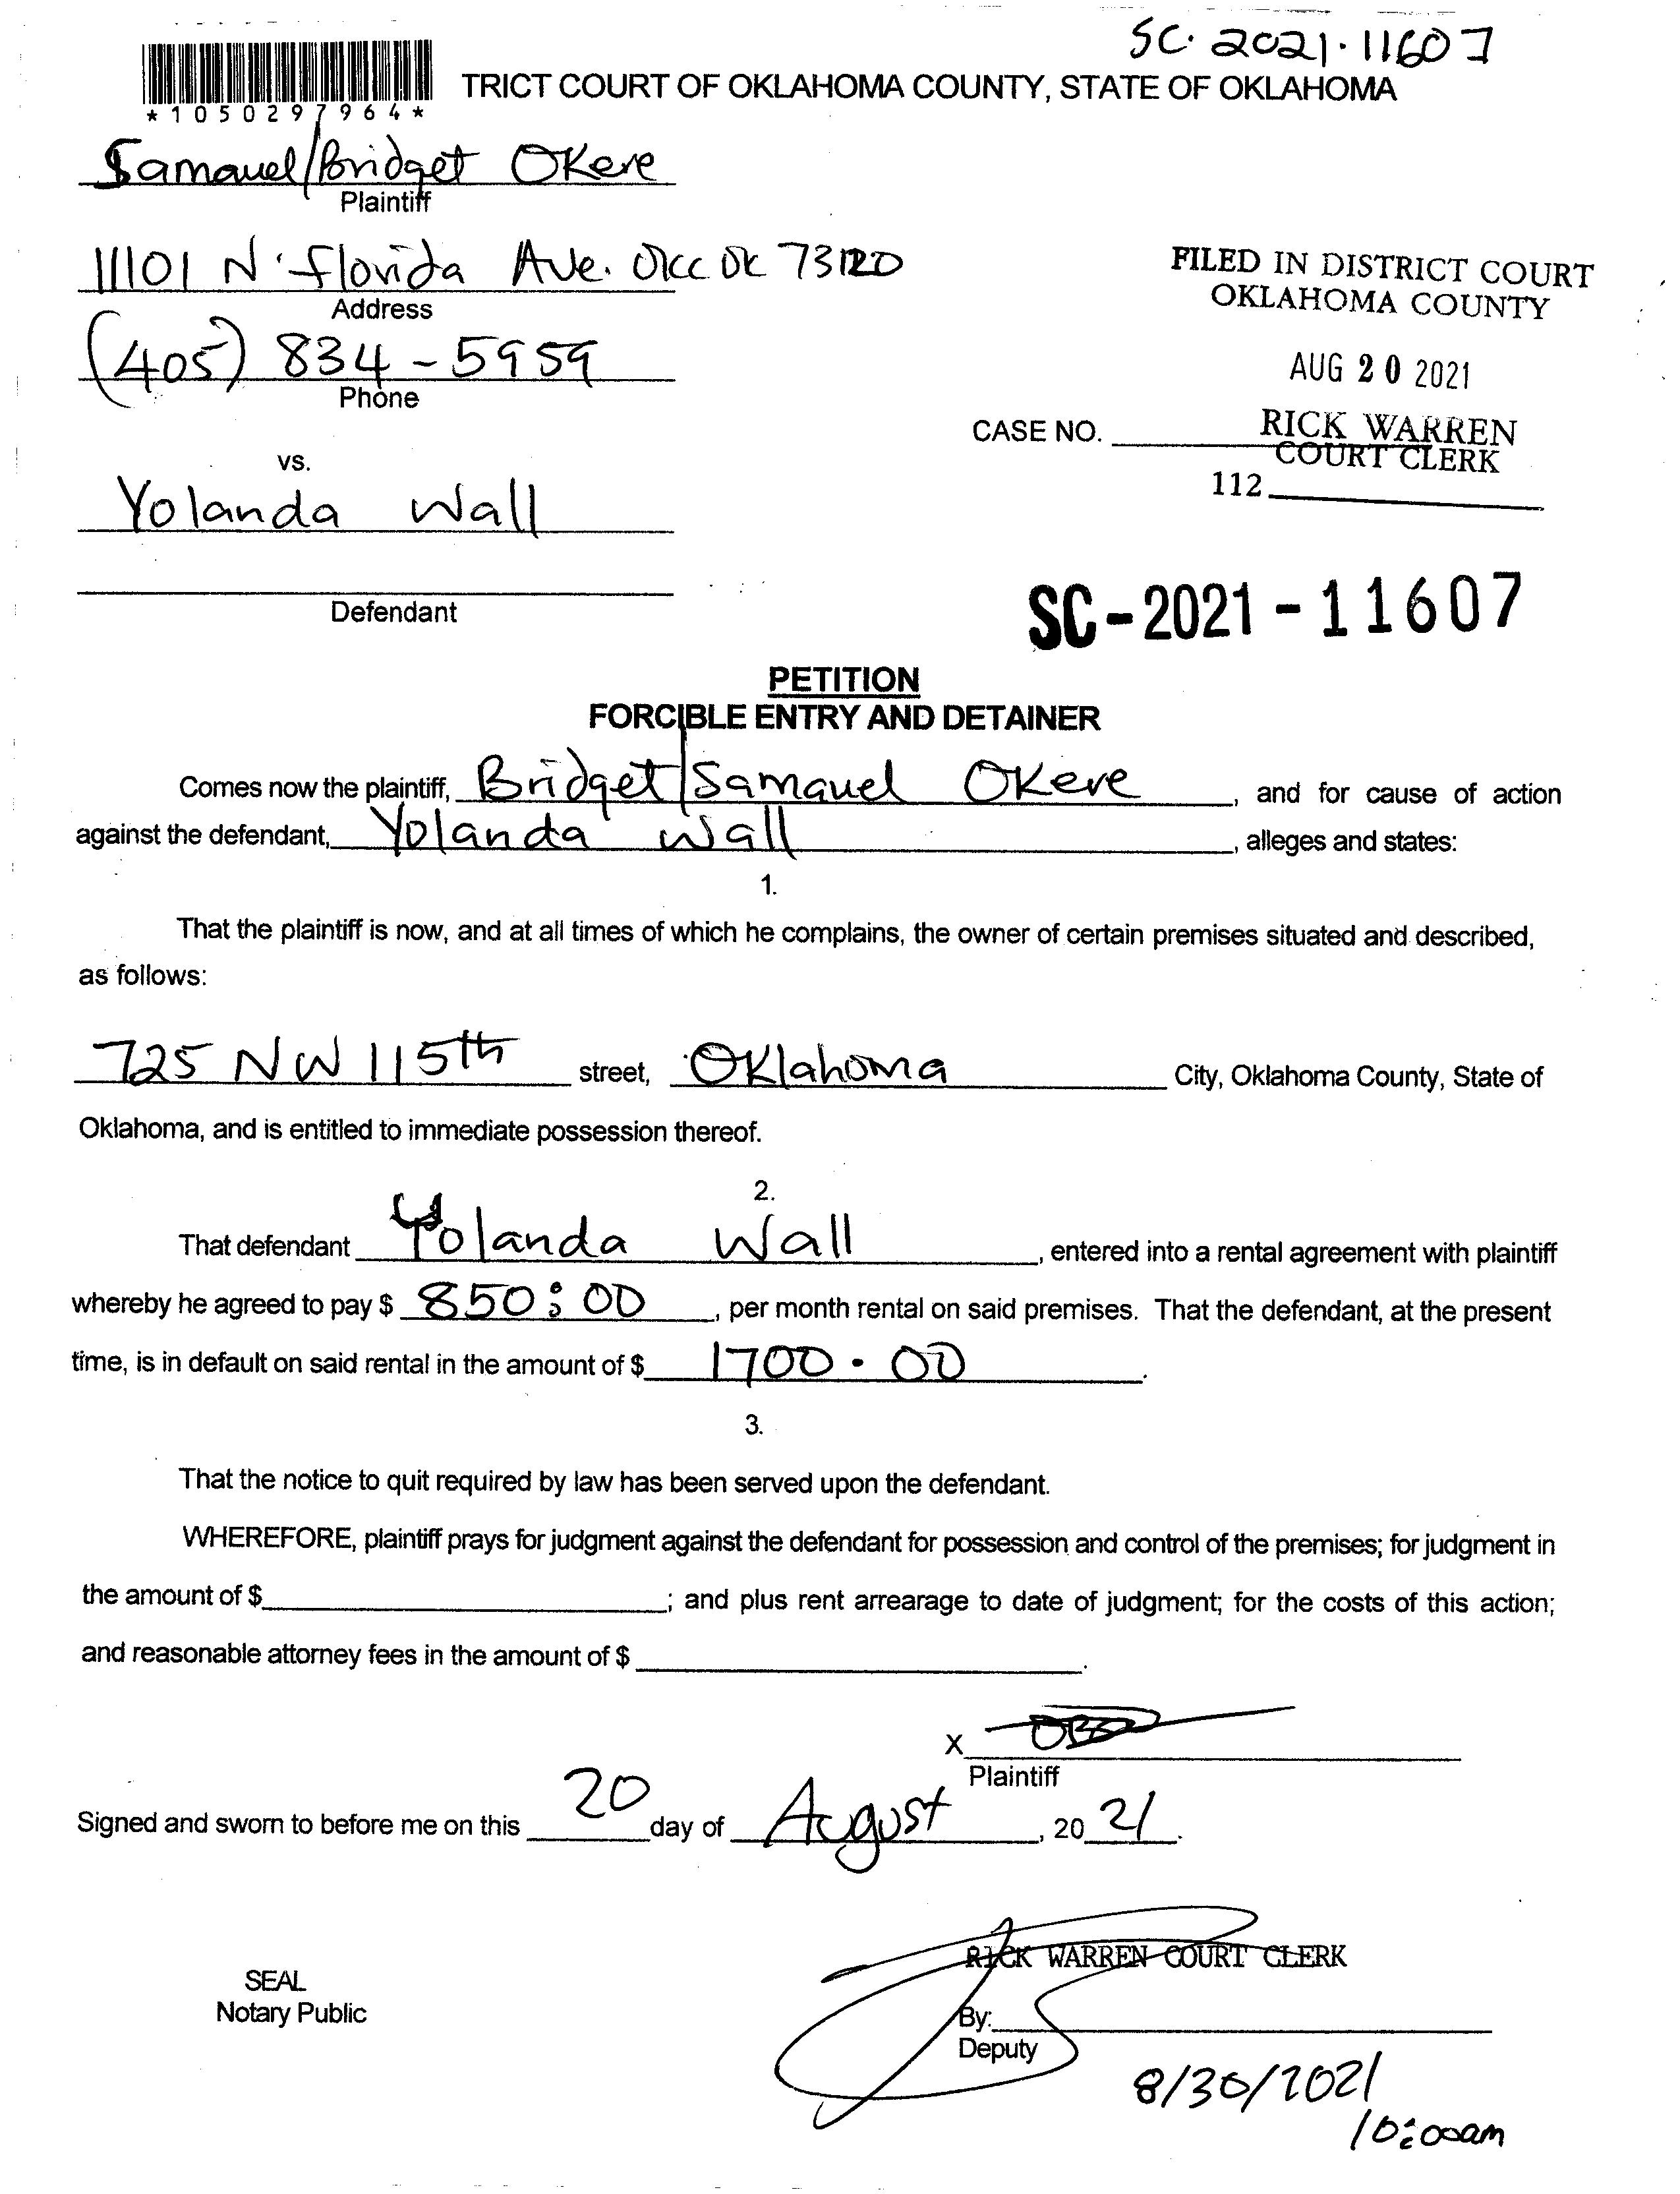 SC. 2021. 11607
TRICT COURT OF OKLAHOMA COUNTY, STATE OF OKLAHOMA
*1050297964*
Samauel/Bridget Okere
Plaintiff
11101 N. Florida Ave. OKC OK 73120
Address
FILED IN DISTRICT COURT
OKLAHOMA COUNTY
(405) 834-5959
Phone
AUG 20 2021
CASE NO.
RICK WARREN
COURT CLERK
112
vs.
Yolanda Wall
Defendant
SC-2021-11607
PETITION
FORCIBLE ENTRY AND DETAINER
Comes now the plaintiff, Bridget/Samauel Okere, and for cause of action
against the defendant, Yolanda Wall, alleges and states:
1.
That the plaintiff is now, and at all times of which he complains, the owner of certain premises situated and described,
as follows:
725 NW 115th street, Oklahoma City, Oklahoma County, State of
Oklahoma, and is entitled to immediate possession thereof.
2.
That defendant Yolanda Wall, entered into a rental agreement with plaintiff
whereby he agreed to pay $ 850:00, per month rental on said premises. That the defendant, at the present
time, is in default on said rental in the amount of $ 1700.00.
3.
That the notice to quit required by law has been served upon the defendant.
WHEREFORE, plaintiff prays for judgment against the defendant for possession and control of the premises; for judgment in
the amount of $ ; and plus rent arrearage to date of judgment; for the costs of this action;
and reasonable attorney fees in the amount of $ .
X
Plaintiff
Signed and sworn to before me on this 20 day of August, 2021.
RICK WARREN COURT CLERK
SEAL
Notary Public
By:
Deputy
8/30/2021
10:00am